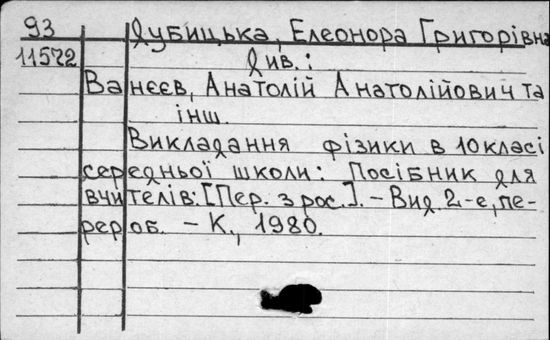 93 Дубицька, Елеонора Григорівна
11572 див.:
Ванєєв, Анатолій Анатолійович та
інш.
Викладання фізики в 10 класі
середньої школи: Посібник для
вчителів: [Пер. з рос.]. – Вид. 2-е, пе-
рероб. – К., 1980.